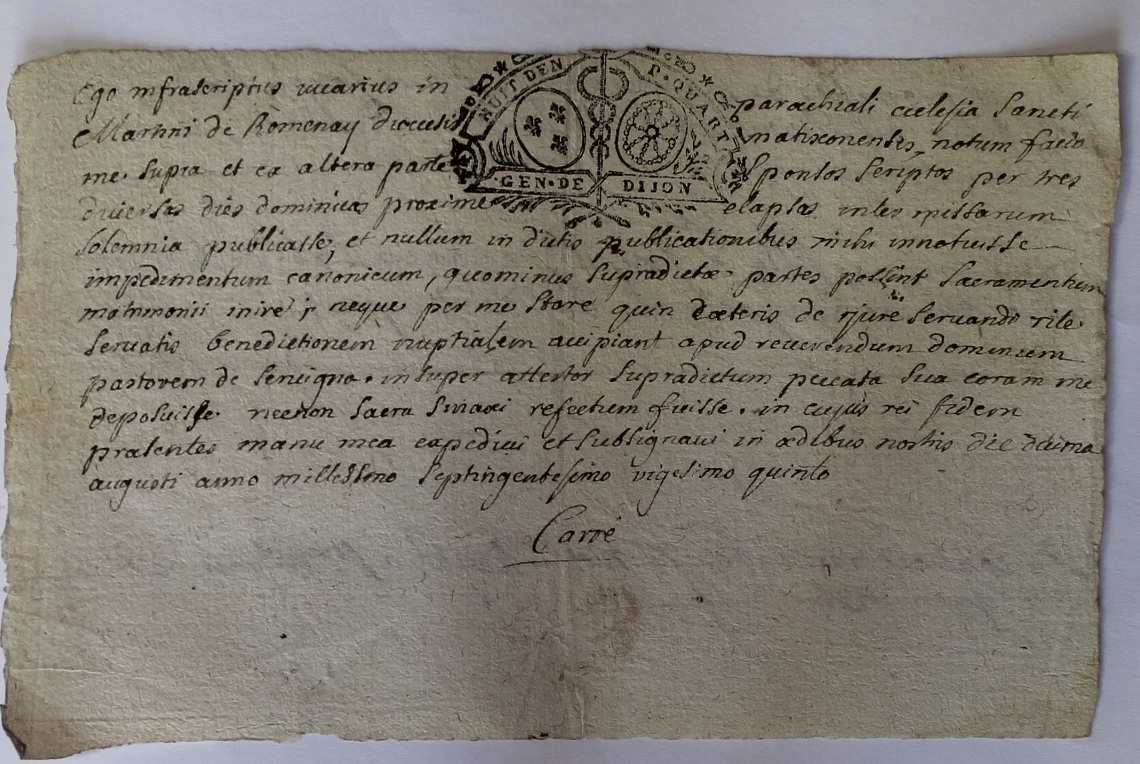 HUIT DEN P. QUART
GEN. DE DIJON
Ego infrascriptus vicarius in parochiali ecclesia Sancti
Martini de Romenay diocesis matisconensis, notum facio
me supra et ex altera parte Sponsos Scriptos per tres
diversas dies dominicas proxime elapsas inter missarum
solemnia publicasse, et nullum in dictis publicationibus mihi innotuisse
impedimentum canonicum, quominus supradictæ partes possint Sacramentum
matrimonii inire; neque per me stare quin cæteris de jure servandis rite
servatis benedictionem nuptialem accipiant apud reverendum dominum
pastorem de . insuper attestor supradictum peccata sua coram me
deposuisse necnon sacra sinaxi refectum fuisse. in cujus rei fidem
præsentes manu mea expedivi et subsignavi in ædibus nostris die decima
augusti anno millesimo septingentesimo vigesimo quinto
Carré